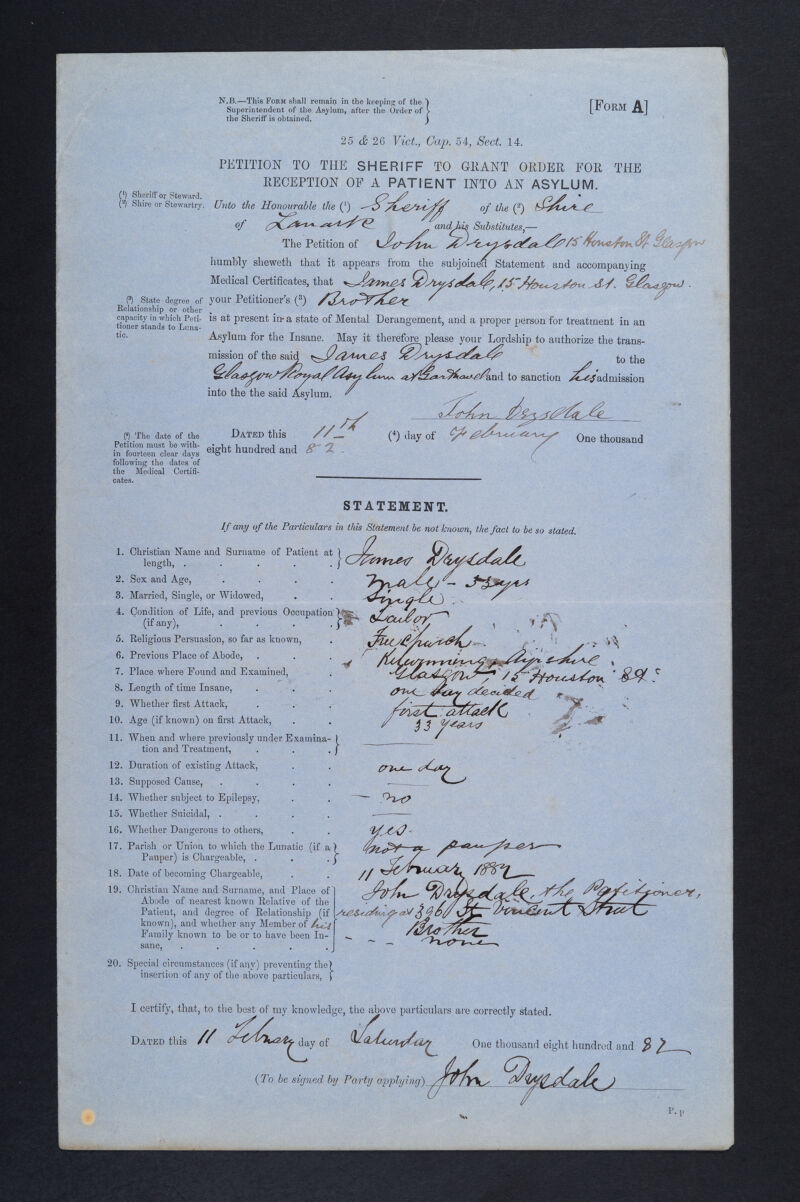 N.B.—This Form shall remain in the keeping of the
Superintendent of the Asylum, after the Order of
the Sheriff is obtained.
[Form A]
25 & 26 Vict., Cap. 54, Sect. 14.
PETITION TO THE SHERIFF TO GRANT ORDER FOR THE
RECEPTION OF A PATIENT INTO AN ASYLUM.
(¹) Sheriff or Steward.
(²) Shire or Stewartry.
Unto the Honourable the (¹) Sheriff of the (²) Shire
of Lanark and his Substitutes,—
The Petition of John Drysdale 15 Houston St. Glasgow
humbly sheweth that it appears from the subjoined Statement and accompanying
Medical Certificates, that James Drysdale, 15 Houston St. Glasgow.
(³) State degree of
Relationship or other
capacity in which Peti-
tioner stands to Luna-
tic.
your Petitioner's (³) Brother
is at present in a state of Mental Derangement, and a proper person for treatment in an
Asylum for the Insane. May it therefore please your Lordship to authorize the trans-
mission of the said James Drysdale to the
Glasgow Royal Asylum at Gartnavel and to sanction his admission
into the the said Asylum.
John Drysdale
(⁴) The date of the
Petition must be with-
in fourteen clear days
following the dates of
the Medical Certifi-
cates.
Dated this 11th (⁴) day of February One thousand
eight hundred and 82.
STATEMENT.
If any of the Particulars in this Statement be not known, the fact to be so stated.
1. Christian Name and Surname of Patient at
length, . . . . . James Drysdale
2. Sex and Age, . . . . Male - 33 yrs
3. Married, Single, or Widowed, . . Single
4. Condition of Life, and previous Occupation
(if any), . . . . Tailor
5. Religious Persuasion, so far as known, . Free Church
6. Previous Place of Abode, . . . Kilwinning, Ayrshire
7. Place where Found and Examined, . Glasgow, 15 Houston St.
8. Length of time Insane, . . . one day decided
9. Whether first Attack, . . . first attack
10. Age (if known) on first Attack, . . 33 years
11. When and where previously under Examina-
tion and Treatment, . . . —
12. Duration of existing Attack, . . one day
13. Supposed Cause, . . . . —
14. Whether subject to Epilepsy, . . — no
15. Whether Suicidal, . . . . —
16. Whether Dangerous to others, . . yes.
17. Parish or Union to which the Lunatic (if a
Pauper) is Chargeable, . . . not a pauper
18. Date of becoming Chargeable, . . 11 February 1882
19. Christian Name and Surname, and Place of
Abode of nearest known Relative of the
Patient, and degree of Relationship (if
known), and whether any Member of his
Family known to be or to have been In-
sane, . . . . .
John Drysdale, the Petitioner,
residing at 396 St Vincent Street
Brother
- - - none
20. Special circumstances (if any) preventing the
insertion of any of the above particulars,
I certify, that, to the best of my knowledge, the above particulars are correctly stated.
Dated this 11 February day of Saturday One thousand eight hundred and 82
(To be signed by Party applying) John Drysdale
P. p